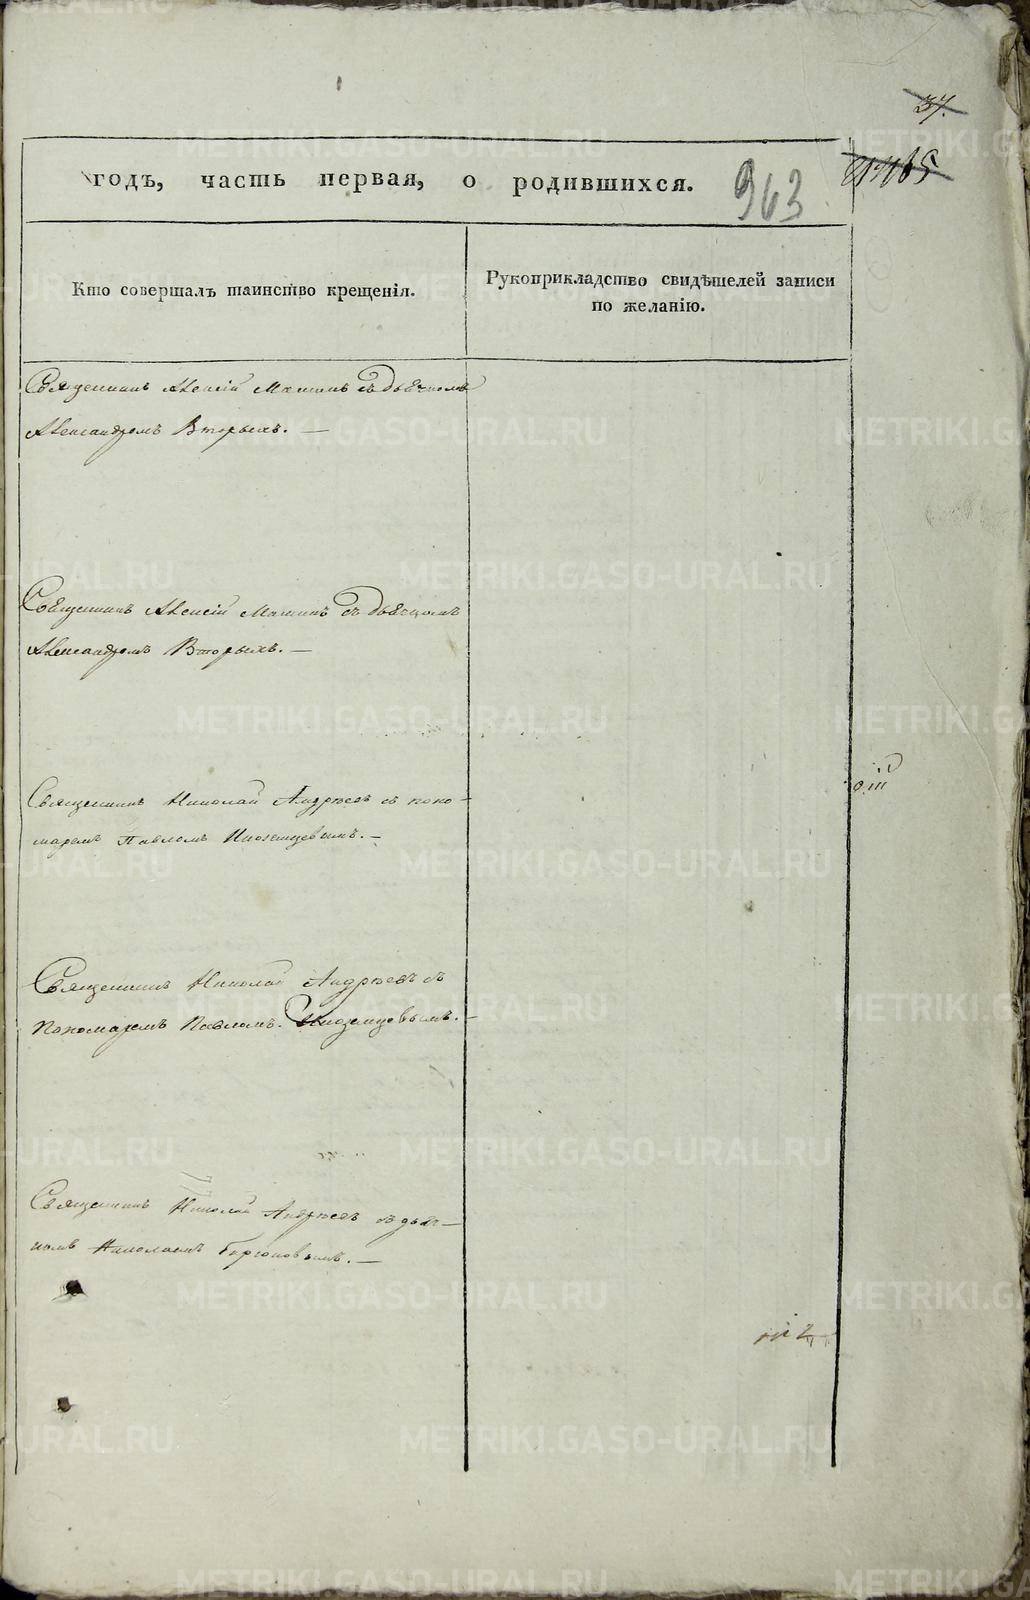 37.
годъ, часть первая, о родившихся.
963
Кто совершалъ таинство крещенія.
Рукоприкладство свидѣтелей записи
по желанію.
Священникъ Алексій Мамин съ дьячкомъ
Александромъ Вторыхъ. —
Священникъ Алексій Маминъ съ дьячкомъ
Александромъ Вторыхъ. —
Священникъ Николай Андреевъ съ поно-
маремъ Павломъ Иноземцевымъ. —
Священникъ Николай Андреевъ съ
пономаремъ Павломъ Иноземцевымъ. —
Священникъ Николай Андреевъ съ дьяч-
комъ Николаемъ —
METRIKI.GASO-URAL.RU